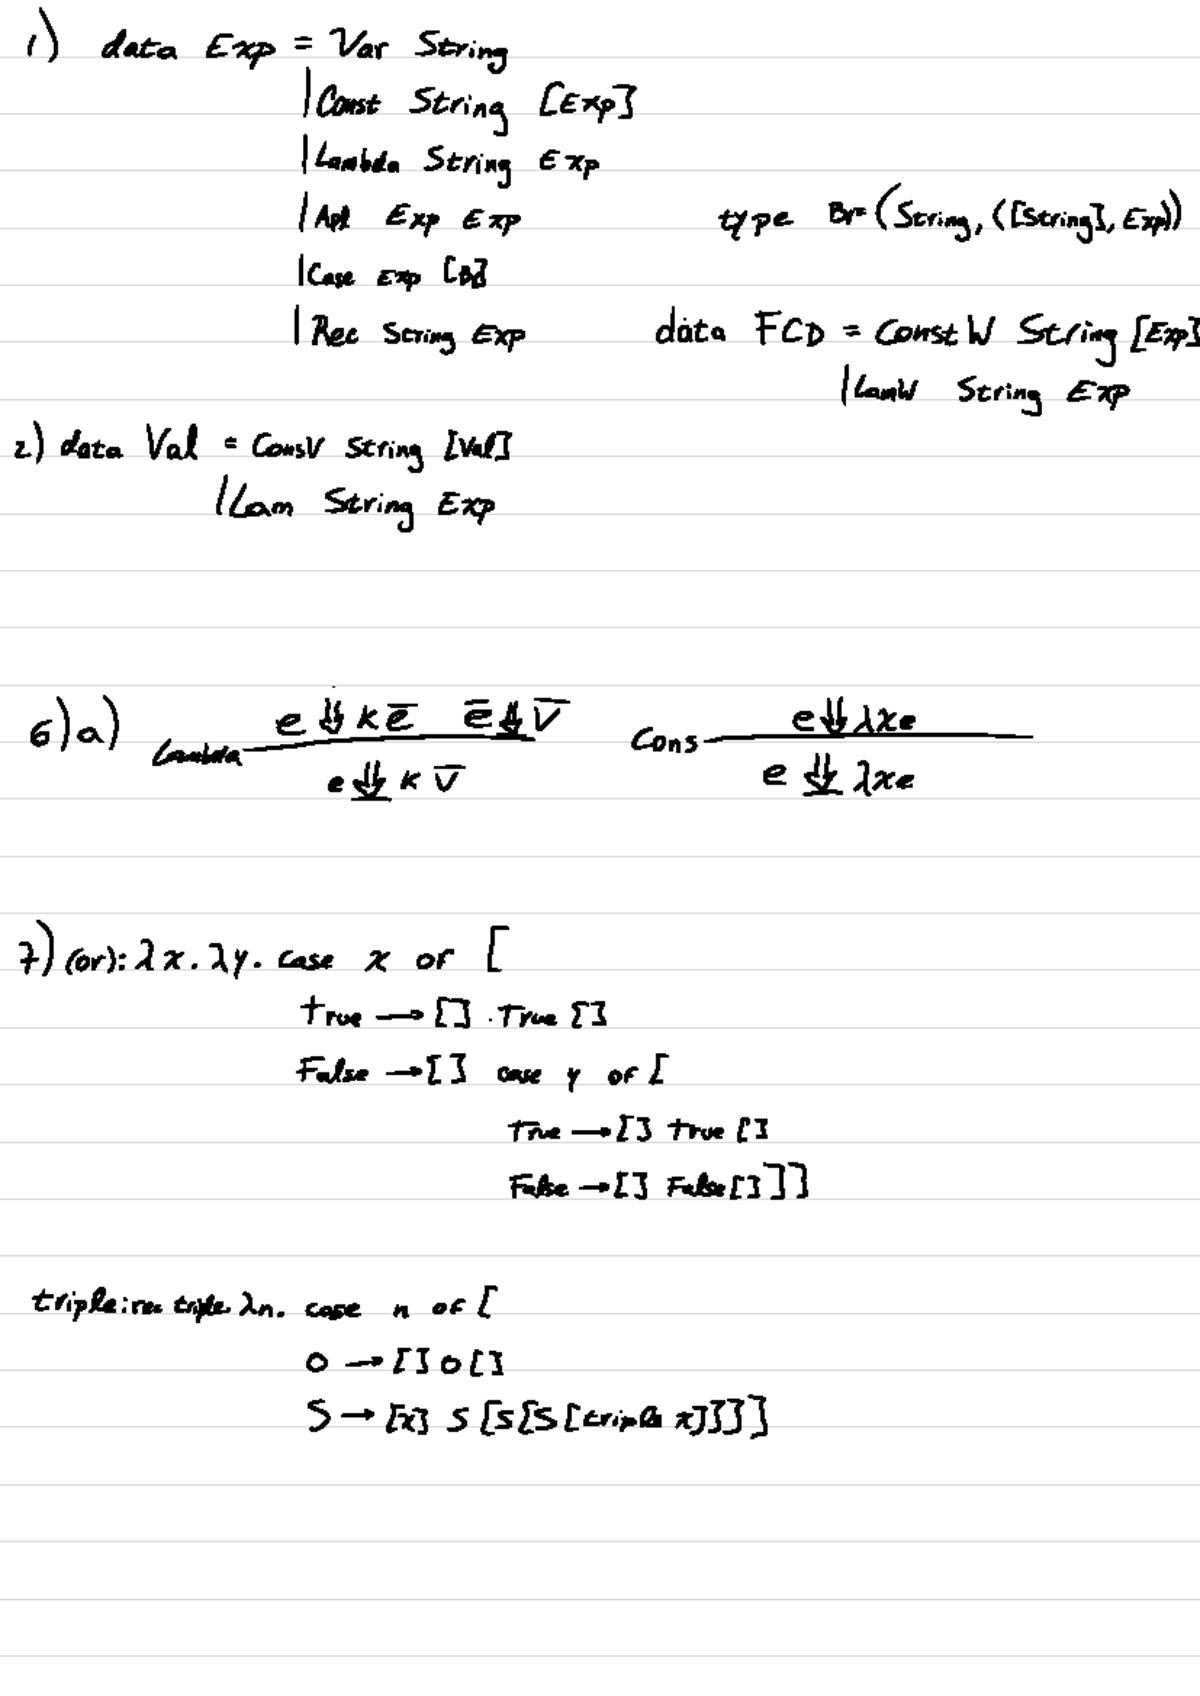 1) data Exp = Var String
| Const String [Exp]
| Lambda String Exp
| Apl Exp Exp type Br = (String, ([String], Exp))
| Case Exp [Br]
| Rec String Exp data FCD = ConstW String [Exp]
| LamW String Exp
2) data Val = ConsV String [Val]
| Lam String Exp
6) a) Lambda e ⇓ K e̅ e̅ ⇓ v̅ Cons e ⇓ λxe
e ⇓ K v̅ e ⇓ λxe
7) (or): λx. λy. case x of [
True → [] . True []
False → [] case y of [
True → [] true []
False → [] False []]]
triple: rec triple λn. case n of [
O → [] O []
S → [x] S [S [S [triple x]]]]